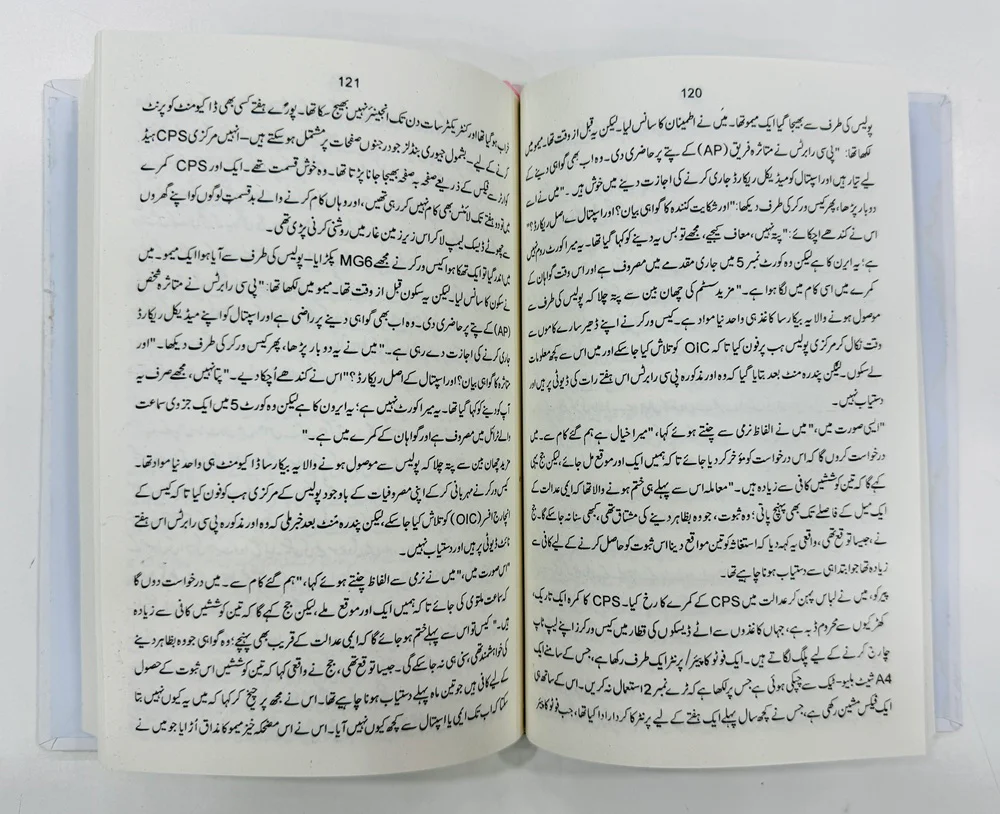 120
پولیس کی طرف سے بھیجا گیا ایک میمو تھا۔ میں نے اطمینان کا سانس لیا۔ لیکن یہ قبل از وقت تھا۔ میمو میں
لکھا تھا: "پی سی رابرٹس نے متاثرہ فریق (AP) کے پتے پر حاضری دی۔ وہ اب بھی گواہی دینے کے
لیے تیار ہیں اور اسپتال کو میڈیکل ریکارڈ جاری کرنے کی اجازت دینے میں خوش ہیں۔" میں نے اسے
دو بار پڑھا، پھر کیس ورکر کی طرف دیکھا: "اور شکایت کنندہ کا گواہی بیان؟ اور اسپتال کے اصل ریکارڈ؟"
اس نے کندھے اچکائے: "پتہ نہیں، معاف کیجیے، مجھے تو بس یہ دینے کو کہا گیا تھا۔ یہ میرا کورٹ روم نہیں
ہے؛ یہ ایرن کا ہے لیکن وہ کورٹ نمبر 5 میں جاری مقدمے میں مصروف ہے اور اس وقت گواہان کے
کمرے میں اسی کام میں لگا ہوا ہے۔" مزید سسٹم کی چھان بین سے پتہ چلا کہ پولیس کی طرف سے
موصول ہونے والا یہ بیکار سا کاغذ ہی واحد نیا مواد ہے۔ کیس ورکر نے اپنے ڈھیر سارے کاموں سے
وقت نکال کر مرکزی پولیس ہب پر فون کیا تاکہ OIC کو تلاش کیا جا سکے اور میں اس سے کچھ معلومات
لے سکوں۔ لیکن پندرہ منٹ بعد بتایا گیا کہ وہ اور مذکورہ پی سی رابرٹس اس ہفتے رات کی ڈیوٹی پر ہیں اور
دستیاب نہیں۔
"ایسی صورت میں،" میں نے الفاظ نرمی سے چنتے ہوئے کہا، "میرا خیال ہے ہم گئے کام سے۔ میں
درخواست کروں گا کہ اس درخواست کو مؤخر کر دیا جائے تاکہ ہمیں ایک اور موقع مل جائے، لیکن جج یہی
کہے گا کہ تین کوششیں کافی سے زیادہ ہیں۔" معاملہ اس سے پہلے ہی ختم ہونے والا تھا کہ ایمی عدالت کے
ایک میل کے فاصلے تک بھی پہنچ پاتی؛ وہ ثبوت، جو وہ بظاہر دینے کی مشتاق تھی، کبھی سنا نہ جا سکے گا۔ جج
نے، جیسا توقع تھی، واقعی یہ کہہ دیا کہ استغاثہ کو تین مواقع دینا اس ثبوت کو حاصل کرنے کے لیے کافی سے
زیادہ تھا جو ابتدا ہی سے دستیاب ہونا چاہیے تھا۔
پیر کو، میں نے لباس پہن کر عدالت میں CPS کے کمرے کا رخ کیا۔ CPS کا کمرہ ایک تاریک،
کھڑکیوں سے محروم ڈبہ ہے، جہاں کاغذوں سے اٹے ڈیسکوں کی قطار میں کیس ورکرز اپنے لیپ ٹاپ
چارج کرنے کے لیے پلگ لگاتے ہیں۔ ایک فوٹو کاپیئر/ پرنٹر ایک طرف رکھا ہے، جس کے سامنے ایک
A4 شیٹ بلیو-ٹیک سے چپکی ہوئی ہے جس پر لکھا ہے کہ ٹرے نمبر 2 استعمال نہ کریں۔ اس کے ساتھ ہی
ایک فیکس مشین رکھی ہے، جس نے کچھ سال پہلے ایک ہفتے کے لیے پرنٹر کا کردار ادا کیا تھا، جب فوٹو کاپیئر
121
خراب ہو گیا تھا اور کنٹریکٹر سات دن تک انجینئر نہیں بھیج سکا تھا۔ پورے ہفتے کسی بھی ڈاکیومنٹ کو پرنٹ
کرنے کے لیے۔ بشمول جیوری بنڈلز جو درجنوں صفحات پر مشتمل ہو سکتے ہیں۔ انہیں مرکزی CPS ہیڈ
کوارٹر سے فیکس کے ذریعے صفحہ بہ صفحہ بھیجا جانا پڑتا تھا۔ وہ خوش قسمت تھے۔ ایک اور CPS کمرے
میں تو دو ہفتے تک لائٹس بھی کام نہیں کر رہی تھیں، اور وہاں کام کرنے والے بدقسمت لوگوں کو اپنے گھروں
سے چھوٹے ڈیسک لیمپ لا کر اس زیر زمین غار میں روشنی کرنی پڑی تھی۔
میں اندر گیا تو ایک تھکا ہوا کیس ورکر نے مجھے MG6 پکڑایا۔ پولیس کی طرف سے آیا ہوا ایک میمو۔ میں
نے سکون کا سانس لیا۔ لیکن یہ سکون قبل از وقت تھا۔ میمو میں لکھا تھا: "پی سی رابرٹس نے متاثرہ شخص
(AP) کے پتے پر حاضری دی۔ وہ اب بھی گواہی دینے پر راضی ہے اور اسپتال کو اپنے میڈیکل ریکارڈ
جاری کرنے کی اجازت دے رہی ہے۔" میں نے یہ دو بار پڑھا، پھر کیس ورکر کی طرف دیکھا۔ "اور
متاثرہ کا گواہی بیان؟ اور اسپتال کے اصل ریکارڈ؟" اس نے کندھے اُچکا دیے۔ "پتا نہیں، مجھے صرف یہ
آپ کو دینے کو کہا گیا تھا۔ یہ میرا کورٹ نہیں ہے؛ یہ ایرون کا ہے لیکن وہ کورٹ 5 میں ایک جزوی سماعت
والے ٹرائل میں مصروف ہے اور گواہان کے کمرے میں ہے۔"
مزید چھان بین سے پتہ چلا کہ پولیس سے موصول ہونے والا یہ بیکار سا ڈاکیومنٹ ہی واحد نیا مواد تھا۔
کیس ورکر نے مہربانی کر کے اپنی مصروفیات کے باوجود پولیس کے مرکزی ہب کو فون کیا تاکہ کیس کے
انچارج افسر (OIC) کو تلاش کیا جا سکے، لیکن پندرہ منٹ بعد خبر ملی کہ وہ اور مذکورہ پی سی رابرٹس اس ہفتے
نائٹ ڈیوٹی پر ہیں اور دستیاب نہیں۔
"اس صورت میں،" میں نے نرمی سے الفاظ چنتے ہوئے کہا، "ہم گئے کام سے۔ میں درخواست دوں گا
کہ سماعت ملتوی کی جائے تاکہ ہمیں ایک اور موقع ملے، لیکن جج کہے گا کہ تین کوششیں کافی سے زیادہ
ہیں۔" کیس تو اس سے پہلے ختم ہو جائے گا کہ ایمی عدالت کے قریب بھی پہنچے؛ وہ گواہی جو وہ بظاہر دینے
کی خواہشمند تھی، سنی ہی نہ جا سکے گی۔ جیسا توقع تھی، جج نے واقعی کہا کہ تین کوششیں اس ثبوت کے حصول
کے لیے کافی ہیں جو تین ماہ پہلے دستیاب ہونا چاہیے تھا۔ اس نے مجھ پر چیخ کر کہا کہ میں یہ کیوں نہیں بتا
سکتا کہ اب تک ایمی یا اسپتال سے کچھ کیوں نہیں آیا۔ اس نے اس مضحکہ خیز میمو کا مذاق اُڑایا جو میں نے